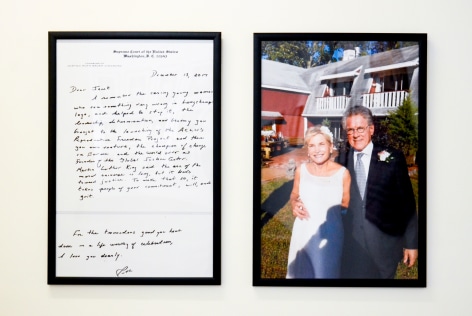 Supreme Court of the United States
Washington, D.C. 20543
December 12, 2014
Dear Janet
I remember the caring young woman
who saw something very wrong in
and helped to stop it, the
leadership, determination, and
brought to the launching of the ACLU's
Reproductive Freedom Project and then
you can continue, the champion of change
in and the world over as
Founder of the Global Justice Center.
Martin Luther King said the arc of the
moral universe is long, but it bends
toward justice. To make that so, it
takes people of your commitment, will, and
grit.
For the tremendous good you have
done in a life worthy of celebration,
I love you dearly.